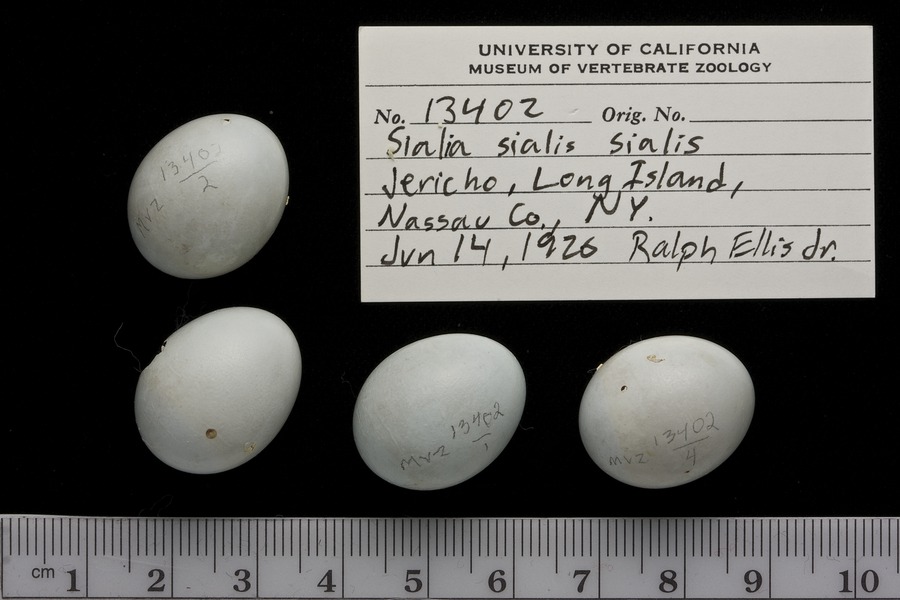 UNIVERSITY OF CALIFORNIA
MUSEUM OF VERTEBRATE ZOOLOGY
No. 13402 Orig. No.
Sialia sialis sialis
Jericho, Long Island,
Nassau Co., NY.
Jun 14, 1926 Ralph Ellis Jr.
MVZ 13402
2
MVZ 13402
1
MVZ 13402
4
cm 1 2 3 4 5 6 7 8 9 10